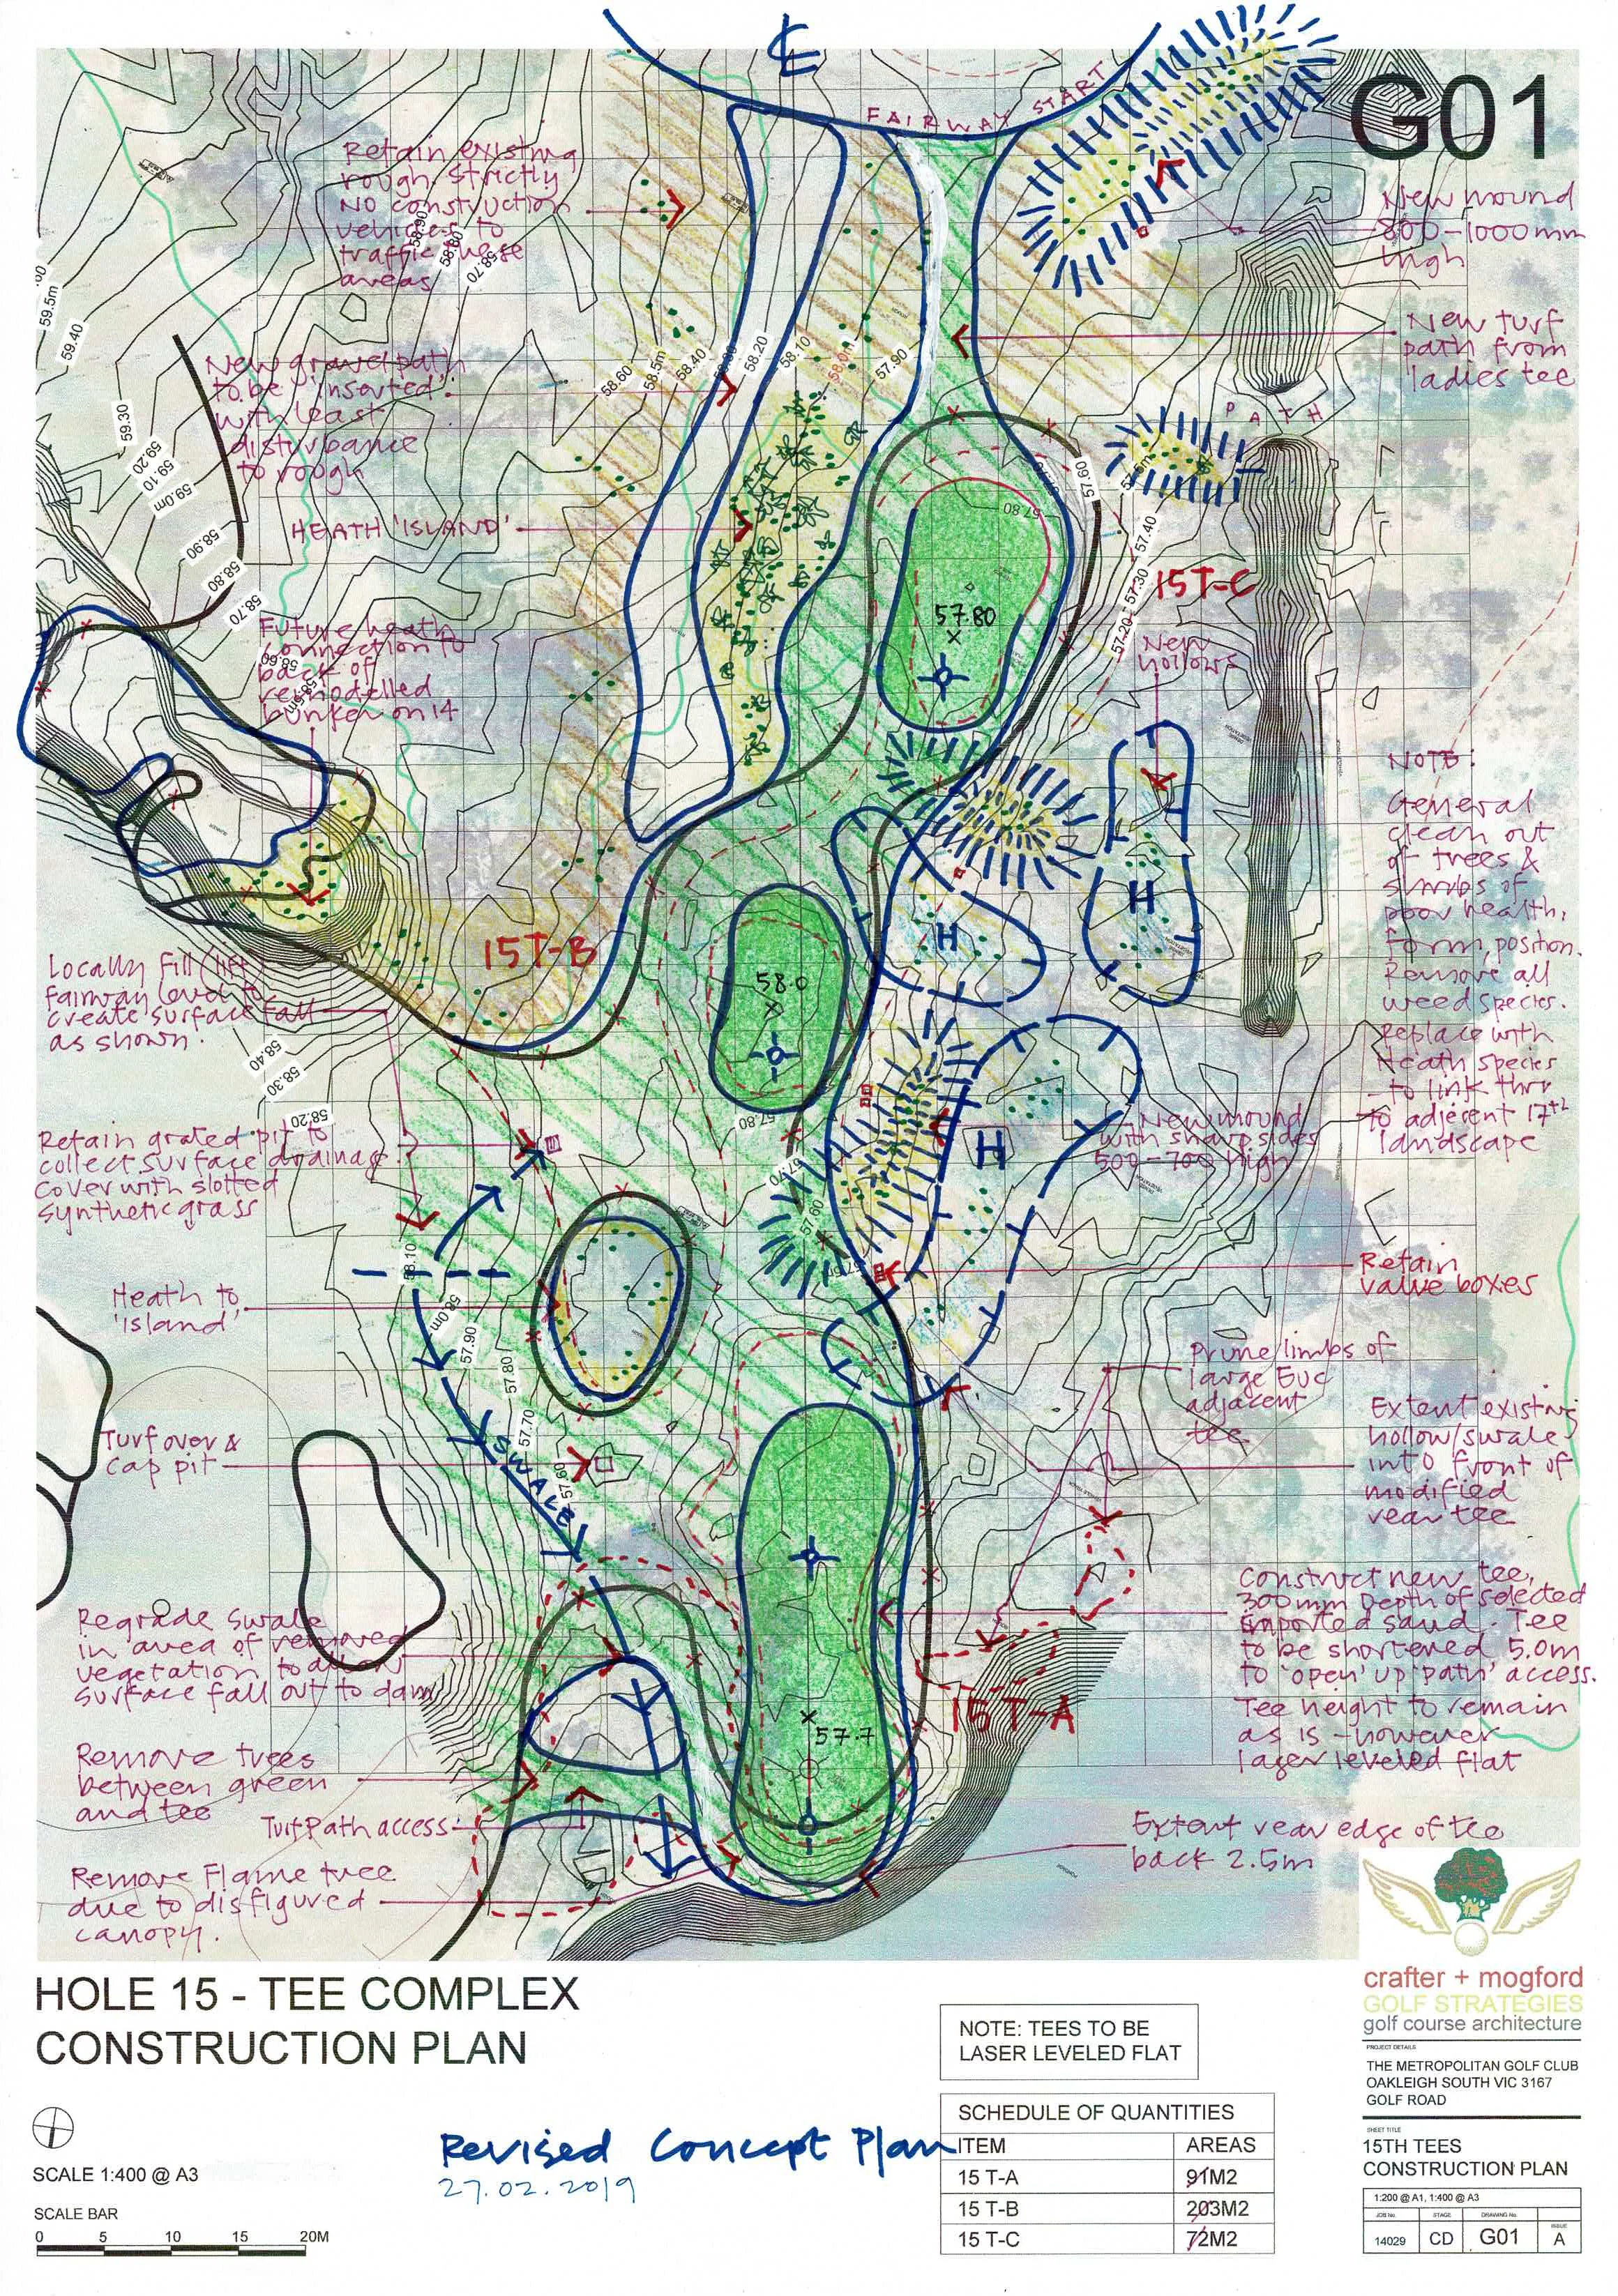 G01
FAIRWAY START
Retain existing
rough. Strictly
NO construction
vehicles to
traffic these
areas
New mound
800-1000mm
high
New turf
path from
ladies tee
PATH
New gravel path
to be 'inserted'
with least
disturbance
to rough
HEATH 'ISLAND'
Future heath
connection to
back of
remodelled
bunker on 14
59.5m
59.40
59.30
59.20
59.10
59.0m
58.90
58.80
58.70
58.90
58.80
58.70
58.60
58.5m
58.40
58.20
58.10
58.0m
57.90
57.80
57.60
57.40
57.30
57.20
57.80
15T-C
New
hollows
NOTE:
General
clean out
of trees &
shrubs of
poor health,
form, position.
Remove all
weed species.
Replace with
Heath species
to link thru
to adjacent 17th
landscape
15T-B
58.0
H
H
H
Locally fill (lift)
fairway level to
create surface fall
as shown.
58.40
58.30
58.20
57.80
57.70
57.60
Retain grated pit to
collect surface drainage
cover with slotted
synthetic grass
New mound
with sharp sides
500-700 high
Retain
valve boxes
58.10
58.0m
57.90
57.80
57.70
57.60
Heath to
'Island'
Prune limbs of
large Euc
adjacent
tee
Extent existing
hollow/swale
into front of
modified
rear tee
Turf over &
cap pit
SWALE
Construct new tee,
300mm Depth of selected
imported sand. Tee
to be shortened 5.0m
to 'open' up 'path' access.
Tee height to remain
as is - however
laser leveled flat
Regrade Swale
in area of removed
vegetation to allow
surface fall out to dam
15T-A
57.7
Remove trees
between green
and tee
Turf Path access
Extent rear edge of tee
back 2.5m
Remove Flame tree
due to disfigured
canopy.
crafter + mogford
GOLF STRATEGIES
golf course architecture
HOLE 15 - TEE COMPLEX
CONSTRUCTION PLAN
NOTE: TEES TO BE
LASER LEVELED FLAT
PROJECT DETAILS
THE METROPOLITAN GOLF CLUB
OAKLEIGH SOUTH VIC 3167
GOLF ROAD
SCHEDULE OF QUANTITIES
ITEM AREAS
15 T-A 91M2
15 T-B 203M2
15 T-C 72M2
Revised Concept Plan
27.02.2019
SCALE 1:400 @ A3
SCALE BAR
0 5 10 15 20M
SHEET TITLE
15TH TEES
CONSTRUCTION PLAN
1:200 @ A1, 1:400 @ A3
JOB No. STAGE DRAWING No. ISSUE
14029 CD G01 A